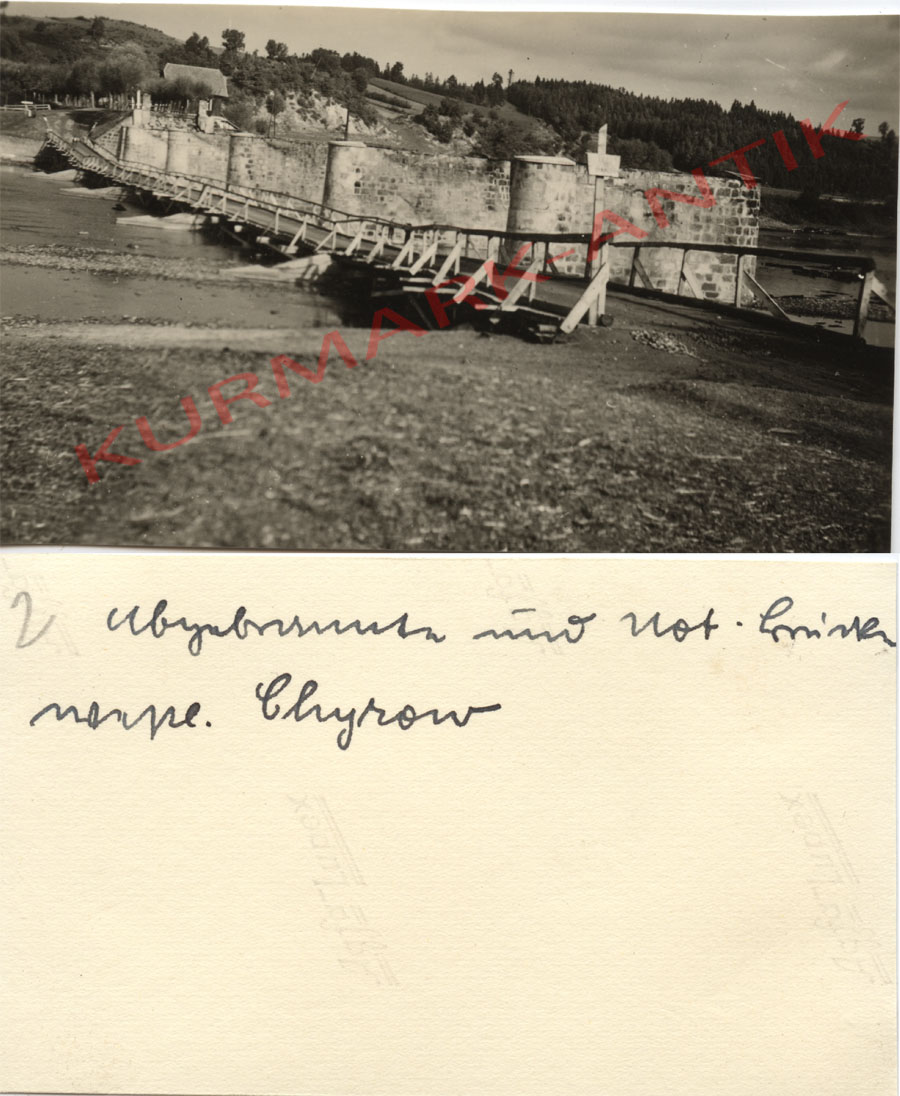 KURMARK-ANTIK
2 Abgebrannte und Not-Brücke
Chyrow